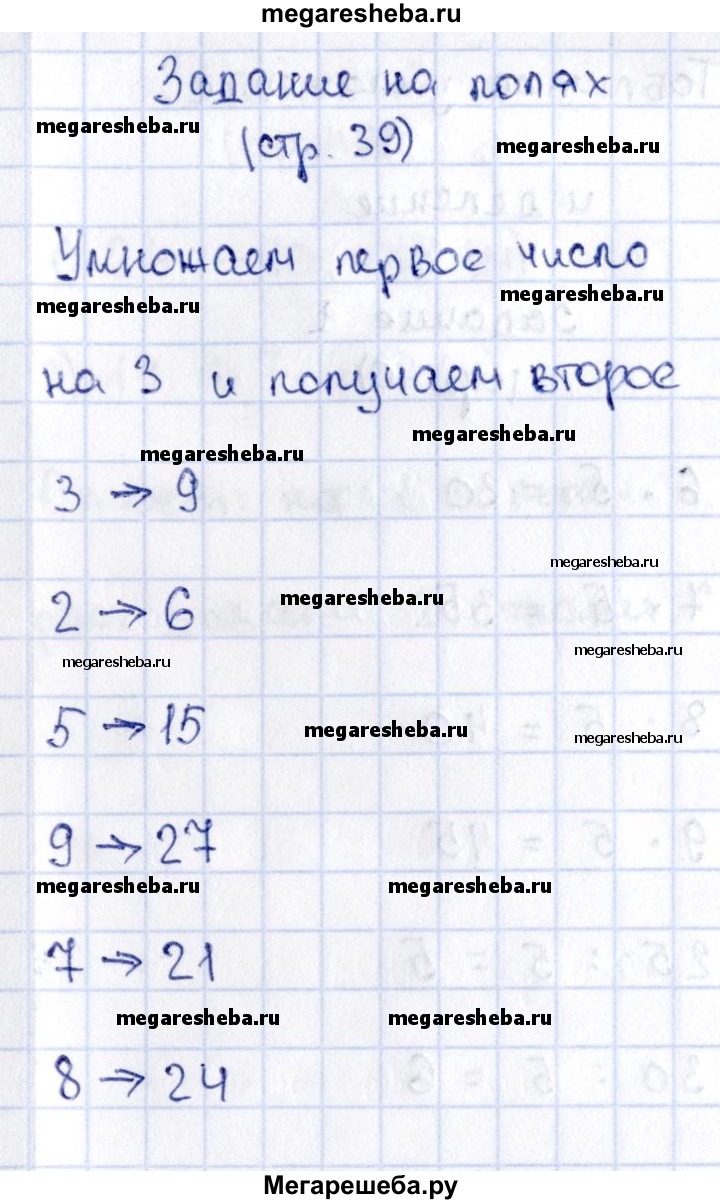 megaresheba.ru
Задание на полях
megaresheba.ru
(стр. 39)
megaresheba.ru
Умножаем первое число
megaresheba.ru
megaresheba.ru
на 3 и получаем второе
megaresheba.ru
megaresheba.ru
3 → 9
megaresheba.ru
2 → 6
megaresheba.ru
megaresheba.ru
megaresheba.ru
5 → 15
megaresheba.ru
megaresheba.ru
9 → 27
megaresheba.ru
megaresheba.ru
7 → 21
megaresheba.ru
megaresheba.ru
8 → 24
Мегарешеба.ру